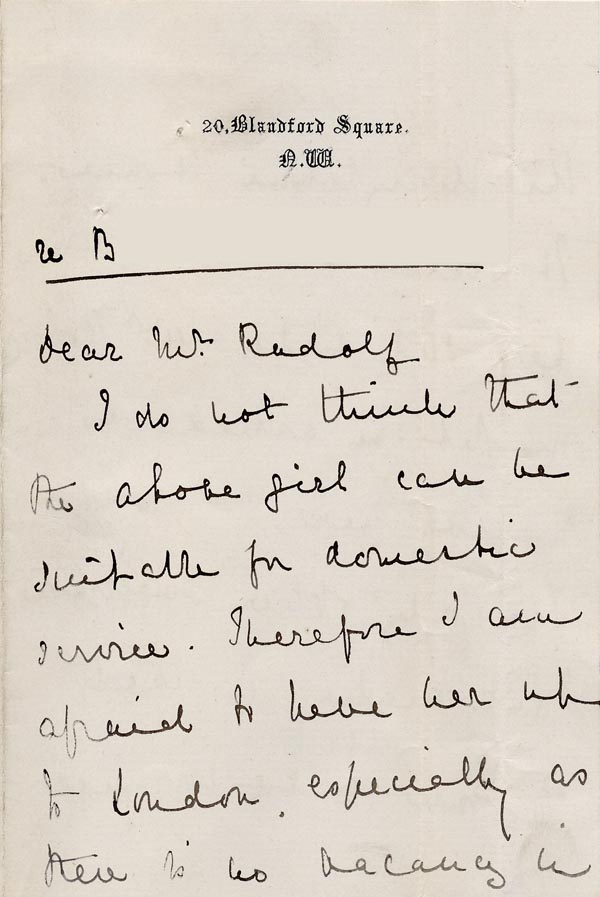 20, Blandford Square.
N.W.
re B
Dear Mr. Rudolf
I do not think that
the above girl can be
suitable for domestic
service. Therefore I am
afraid to have her up
to London, especially as
there is no vacancy in